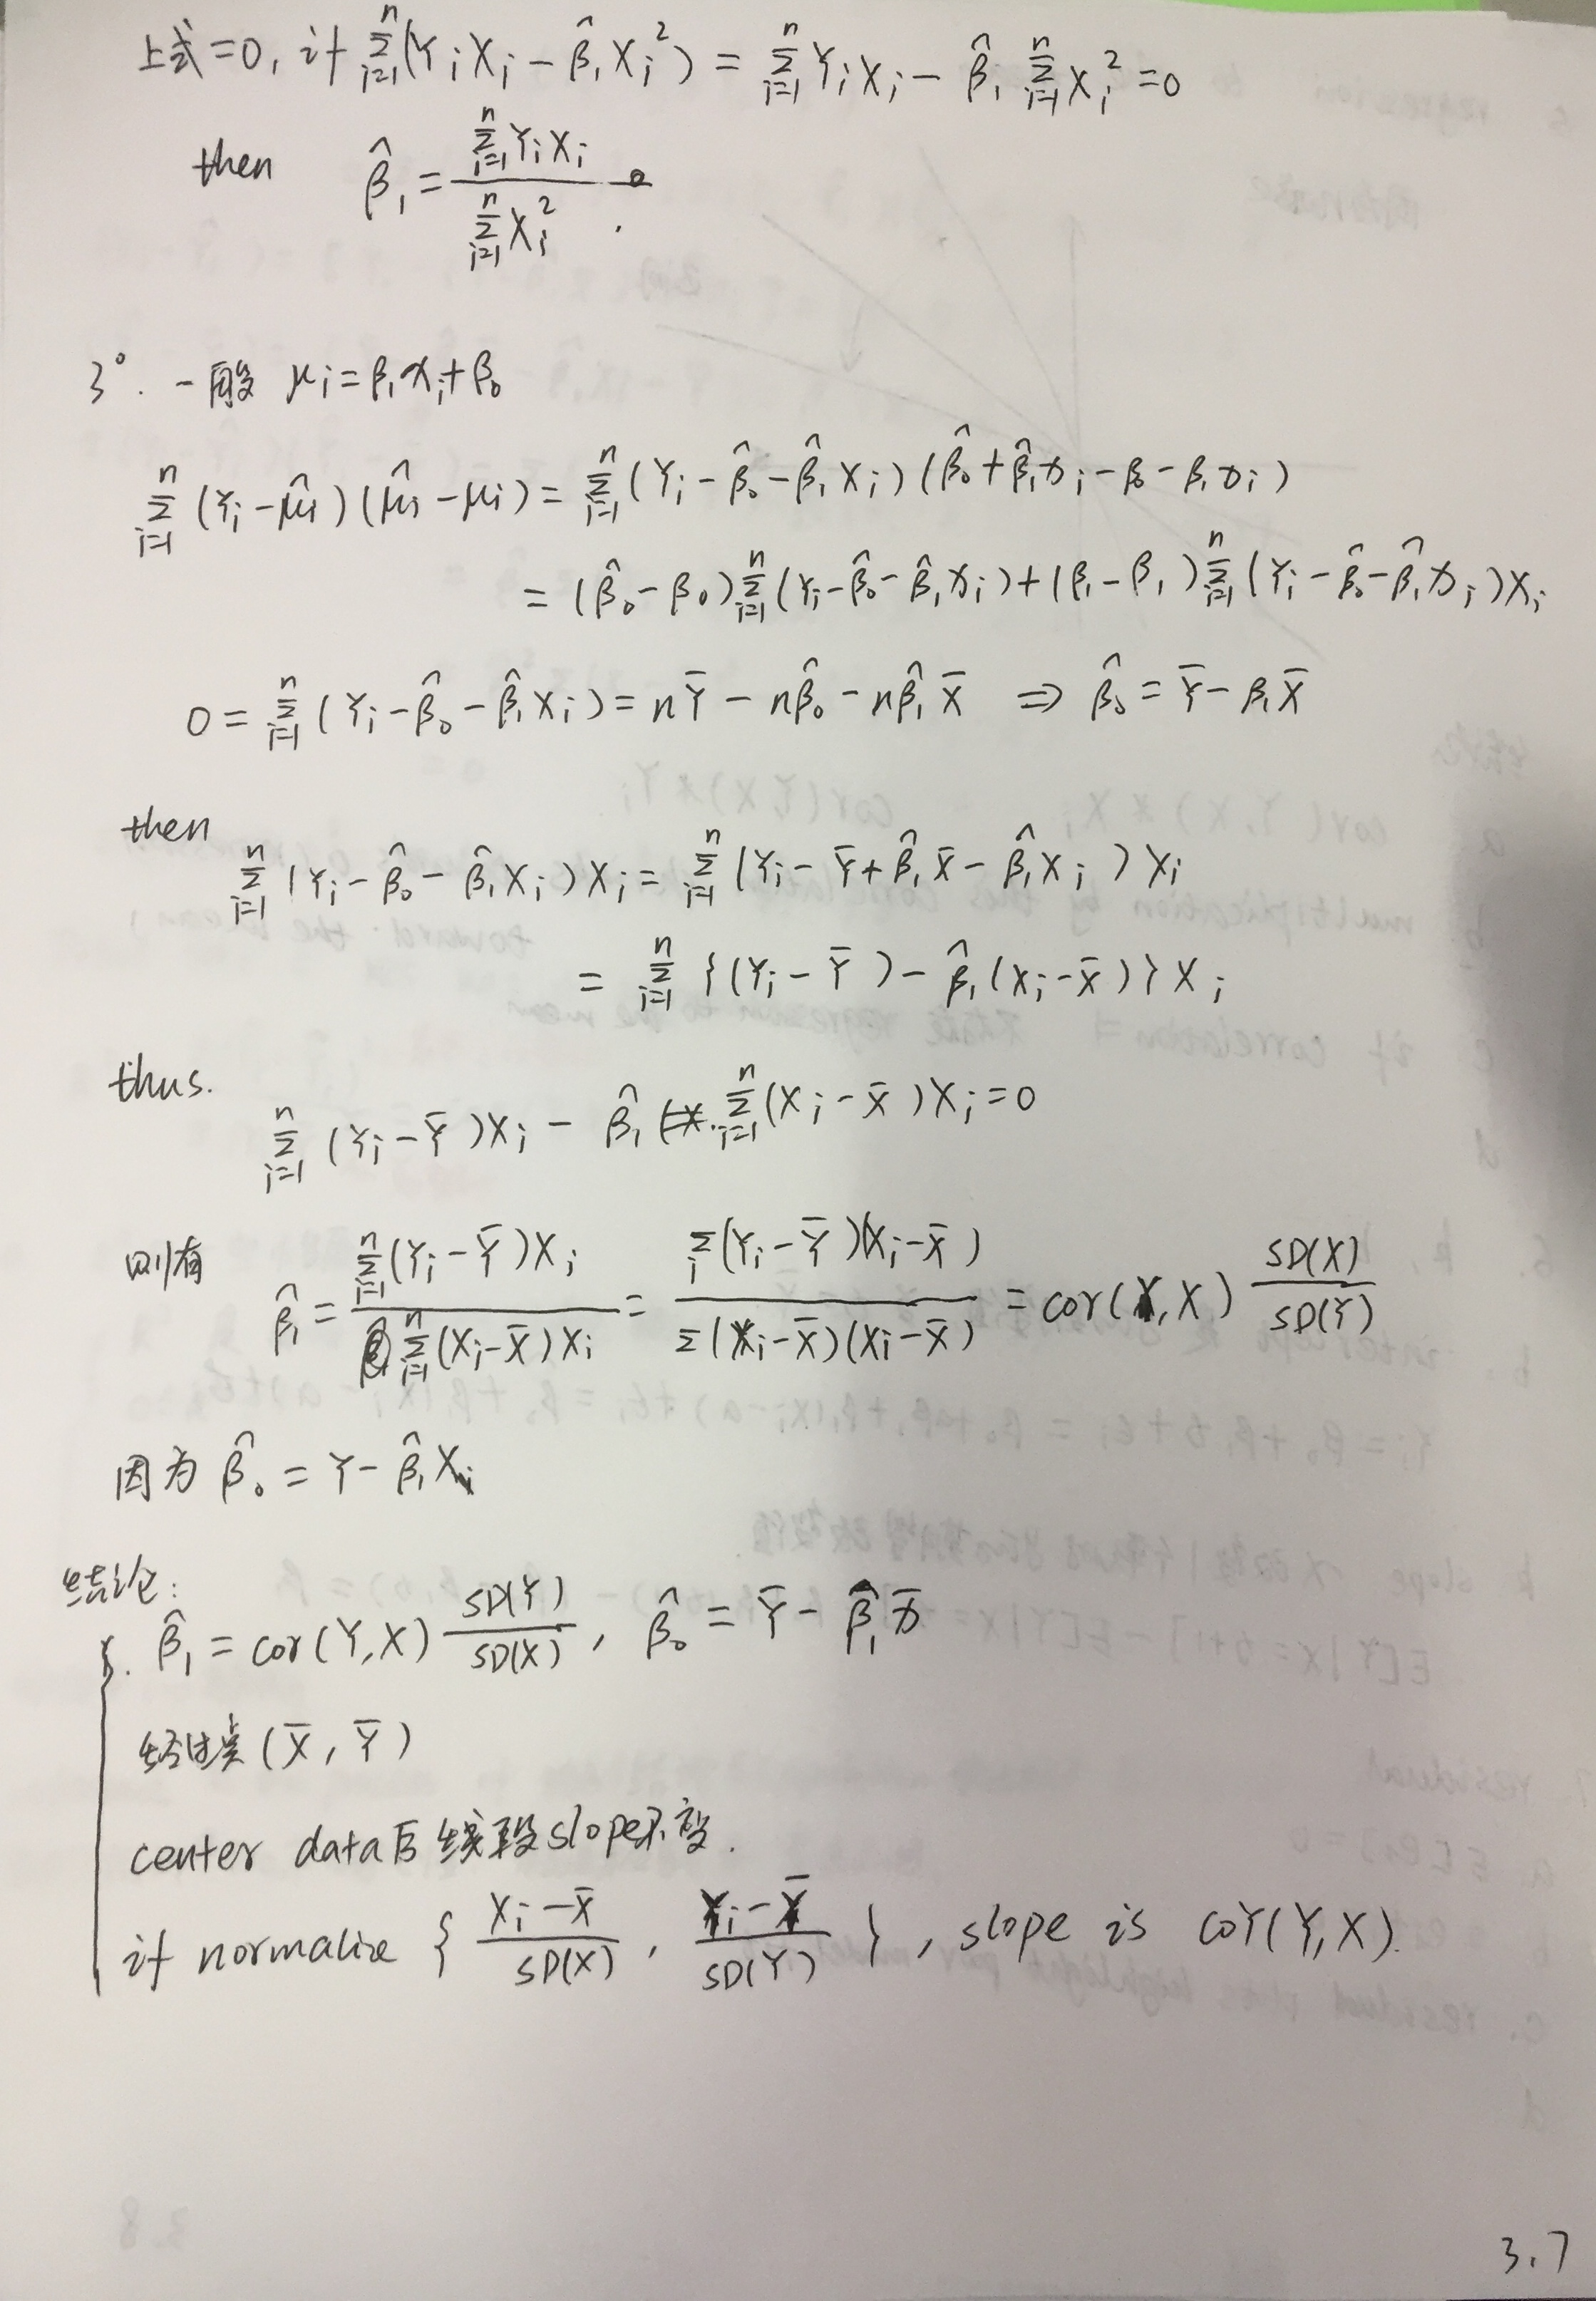 上式=0, if Σ_{i=1}^{n}(Y_i X_i − β̂_1 X_i²) = Σ_{i=1}^{n} Y_i X_i − β̂_1 Σ_{i=1}^{n} X_i² = 0
then β̂_1 = Σ_{i=1}^{n} Y_i X_i / Σ_{i=1}^{n} X_i² .
3°. 一般 μ_i = β_1 x_i + β_0
Σ_{i=1}^{n} (Y_i − μ̂_i)(μ̂_i − μ_i) = Σ_{i=1}^{n} (Y_i − β̂_0 − β̂_1 X_i)(β̂_0 + β̂_1 x_i − β_0 − β_1 x_i)
= (β̂_0 − β_0) Σ_{i=1}^{n} (Y_i − β̂_0 − β̂_1 x_i) + (β_1 − β_1) Σ_{i=1}^{n} (Y_i − β̂_0 − β̂_1 x_i) X_i
0 = Σ_{i=1}^{n} (Y_i − β̂_0 − β̂_1 X_i) = nȲ − nβ̂_0 − nβ̂_1 X̄ ⇒ β̂_0 = Ȳ − β_1 X̄
then
Σ_{i=1}^{n} (Y_i − β̂_0 − β̂_1 X_i) X_i = Σ_{i=1}^{n} (Y_i − Ȳ + β̂_1 X̄ − β̂_1 X_i) X_i
= Σ_{i=1}^{n} {(Y_i − Ȳ) − β̂_1 (X_i − X̄)} X_i
thus.
Σ_{i=1}^{n} (Y_i − Ȳ) X_i − β̂_1 Σ_{i=1}^{n} (X_i − X̄) X_i = 0
则有 β̂_1 = Σ_{i=1}^{n} (Y_i − Ȳ) X_i / Σ_{i=1}^{n} (X_i − X̄) X_i = Σ_i (Y_i − Ȳ)(X_i − X̄) / Σ (X_i − X̄)(X_i − X̄) = cor(Y, X) SD(X) / SD(Y)
因为 β̂_0 = Y − β̂_1 X
结论:
β̂_1 = cor(Y, X) SD(Y) / SD(X) , β̂_0 = Ȳ − β̂_1 x̄
经过点 (X̄, Ȳ)
center data后 线段slope不变.
if normalize { (X_i − X̄) / SD(X) , (Y_i − Ȳ) / SD(Y) } , slope is cor(Y, X).
3.7